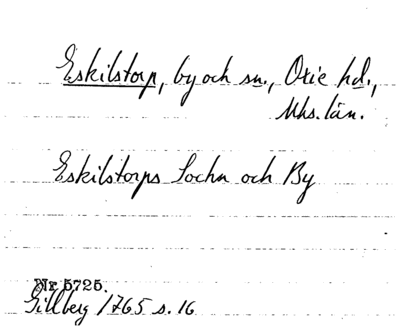 Eskilstorp, by och sn., Oxie hd.,
Mhs. län.
Eskilstorps Sochn och By
Nr 5725.
Gillberg 1765 s. 16